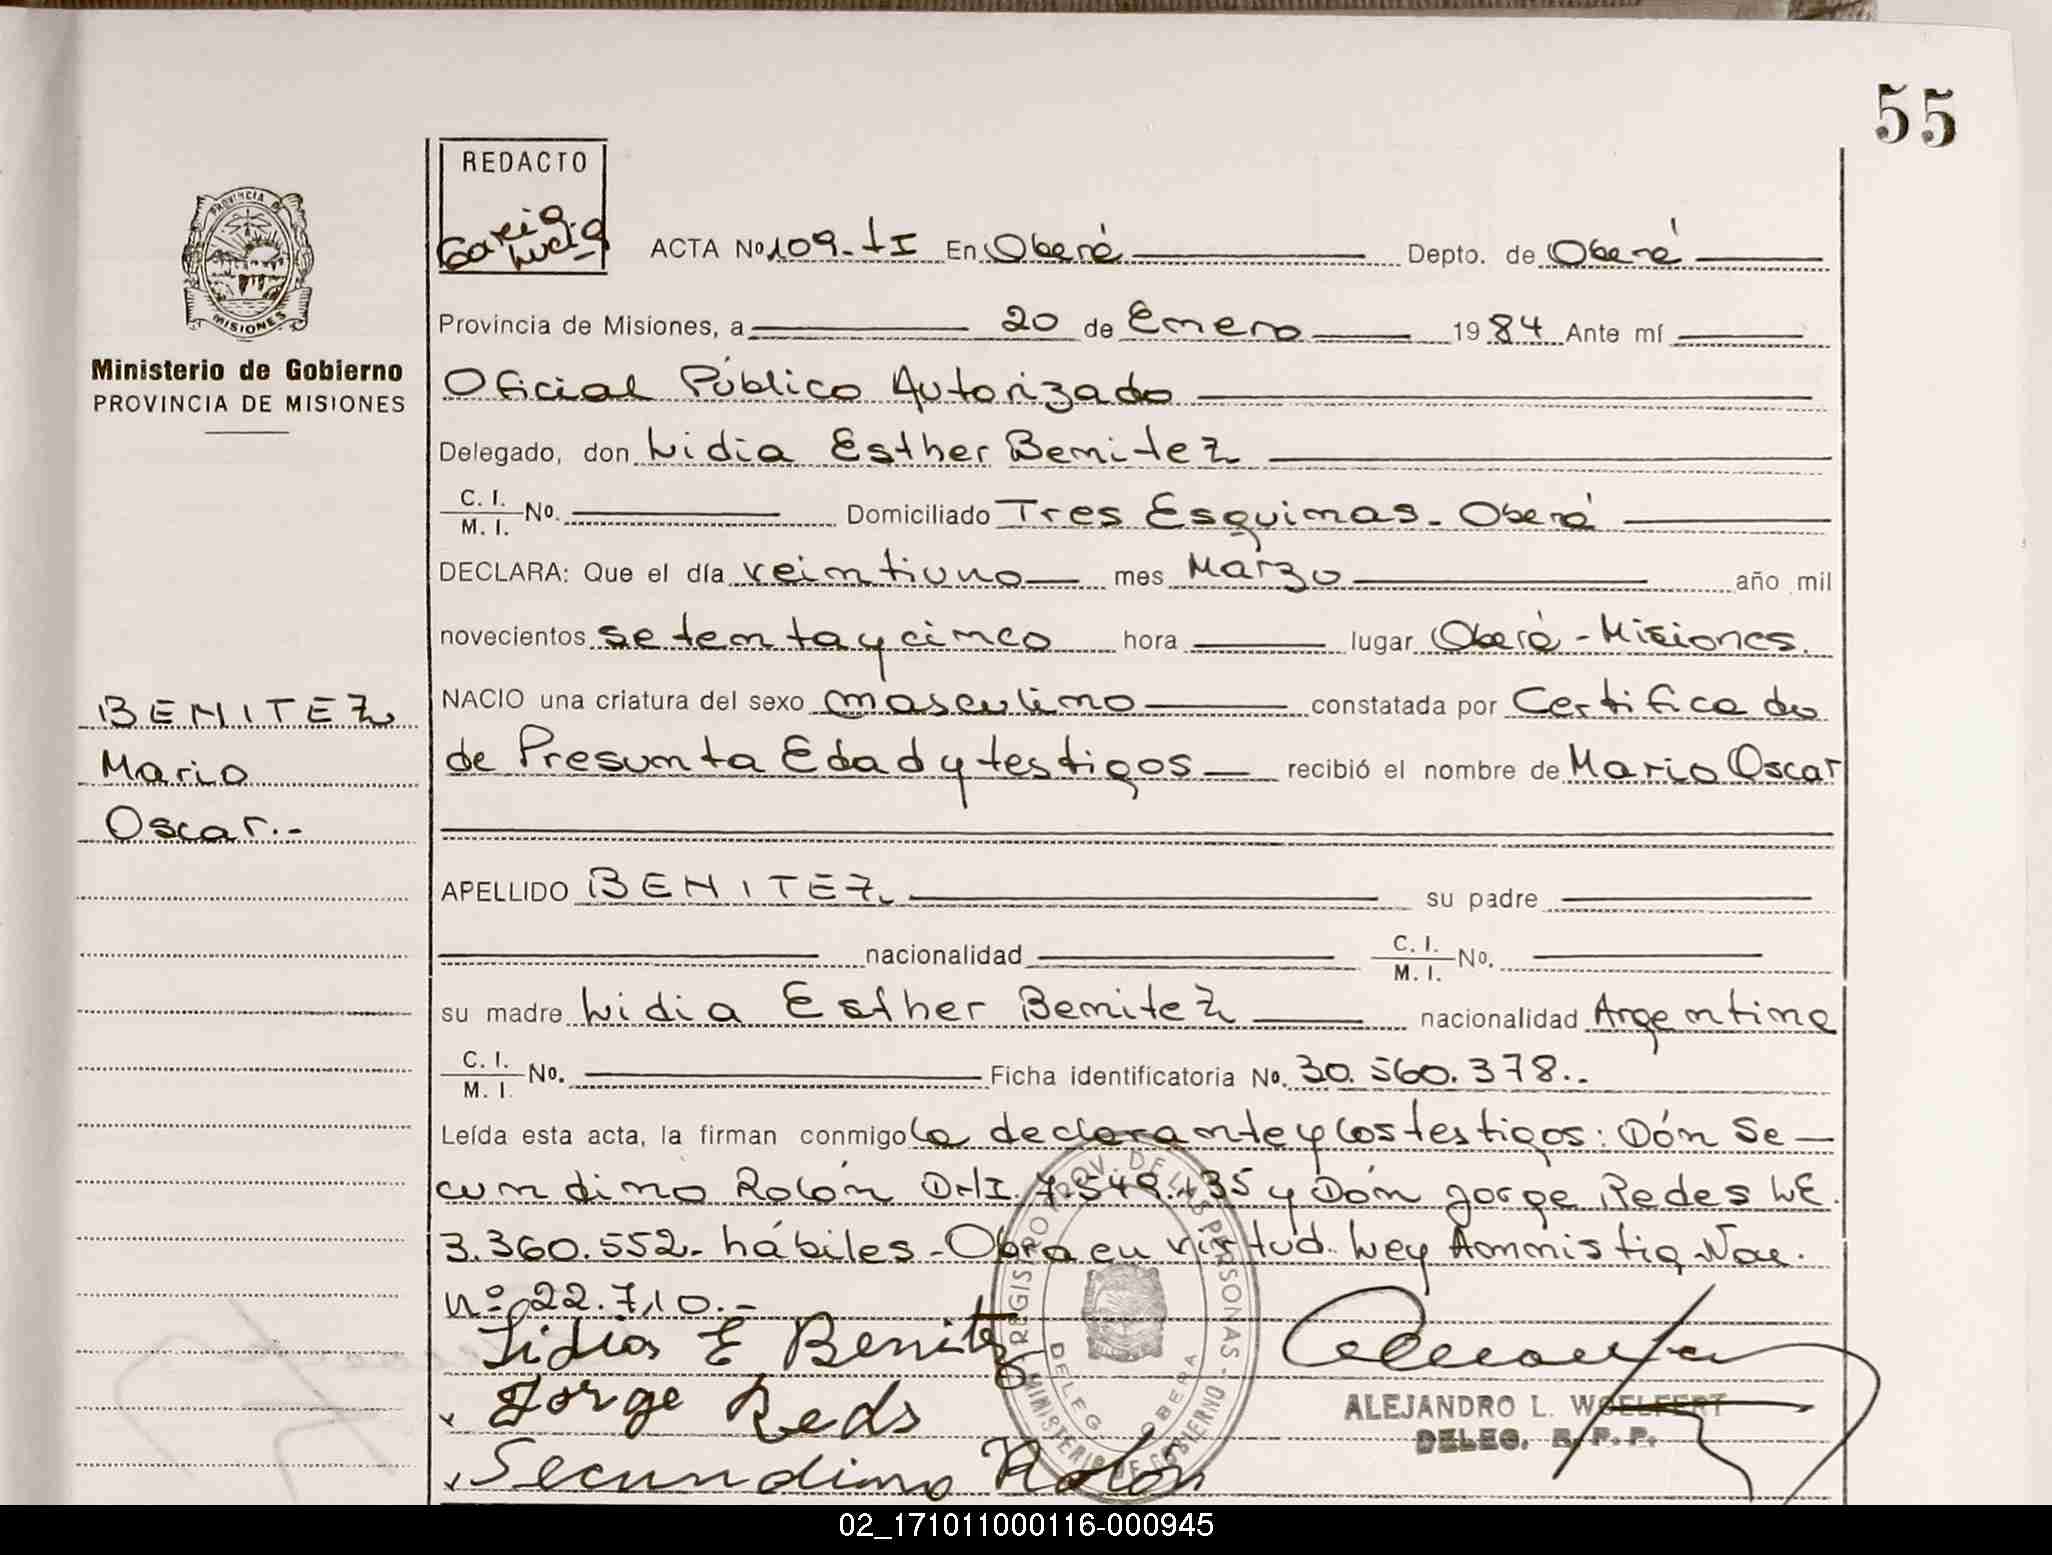 55
REDACTO
PROVINCIA DE
MISIONES
Ministerio de Gobierno
PROVINCIA DE MISIONES
ACTA Nº 109-tI En Oberá Depto. de Oberá
Provincia de Misiones, a 20 de Enero 1984 Ante mí
Oficial Público Autorizado
Delegado, don Lidia Esther Benitez
C. I. M. I. Nº. Domiciliado Tres Esquinas - Oberá
DECLARA: Que el día veintiuno mes Marzo año mil
novecientos setenta y cinco hora lugar Oberá - Misiones.
BENITEZ
Mario
Oscar.-
NACIO una criatura del sexo masculino constatada por Certificado
de Presunta Edad y testigos recibió el nombre de Mario Oscar
APELLIDO BENITEZ su padre
nacionalidad C. I. M. I. Nº.
su madre Lidia Esther Benitez nacionalidad Argentina
C. I. M. I. Nº. Ficha identificatoria Nº. 30.560.378.-
Leída esta acta, la firman conmigo la declarante y los testigos: Dón Se-
cundino Rolón y Dón Jorge Redes LE.
3.360.552- hábiles - Obra en virtud. Ley Ammistia Nac.
nº 22.710.-
Lidia E Benitez
Jorge Reds
Secundino Rolon
REGISTRO PROV. DE LAS PERSONAS - MINISTERIO DE GOBIERNO
DELEG. OBERA
ALEJANDRO L. WOELFERT
DELEG. R. P. P.
02_171011000116-000945